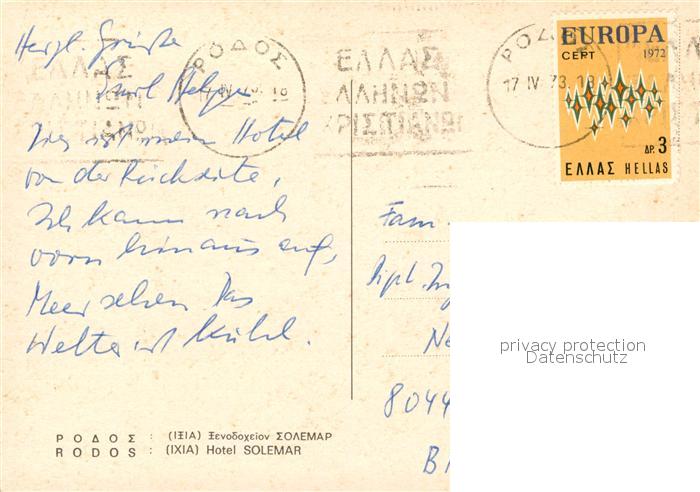 Herzl. Grüße
Dies ist mein Hotel
von der Rückseite,
Ich kann nach
vorn hinaus auf,
Meer sehen Das
Wetter ist kühl.
ΡΟΔΟΣ : (ΙΞΙΑ) Ξενοδοχεῖον ΣΟΛΕΜΑΡ
RODOS : (IXIA) Hotel SOLEMAR
ΡΟΔΟΣ
ΕΛΛΑΣ
ΕΛΛΗΝΩΝ
ΧΡΙΣΤΙΑΝΩΝ
17 IV 73 18
EUROPA
CEPT 1972
ΔΡ. 3
ΕΛΛΑΣ HELLAS
Fam.
Dipl. Ing
8044
privacy protection
Datenschutz